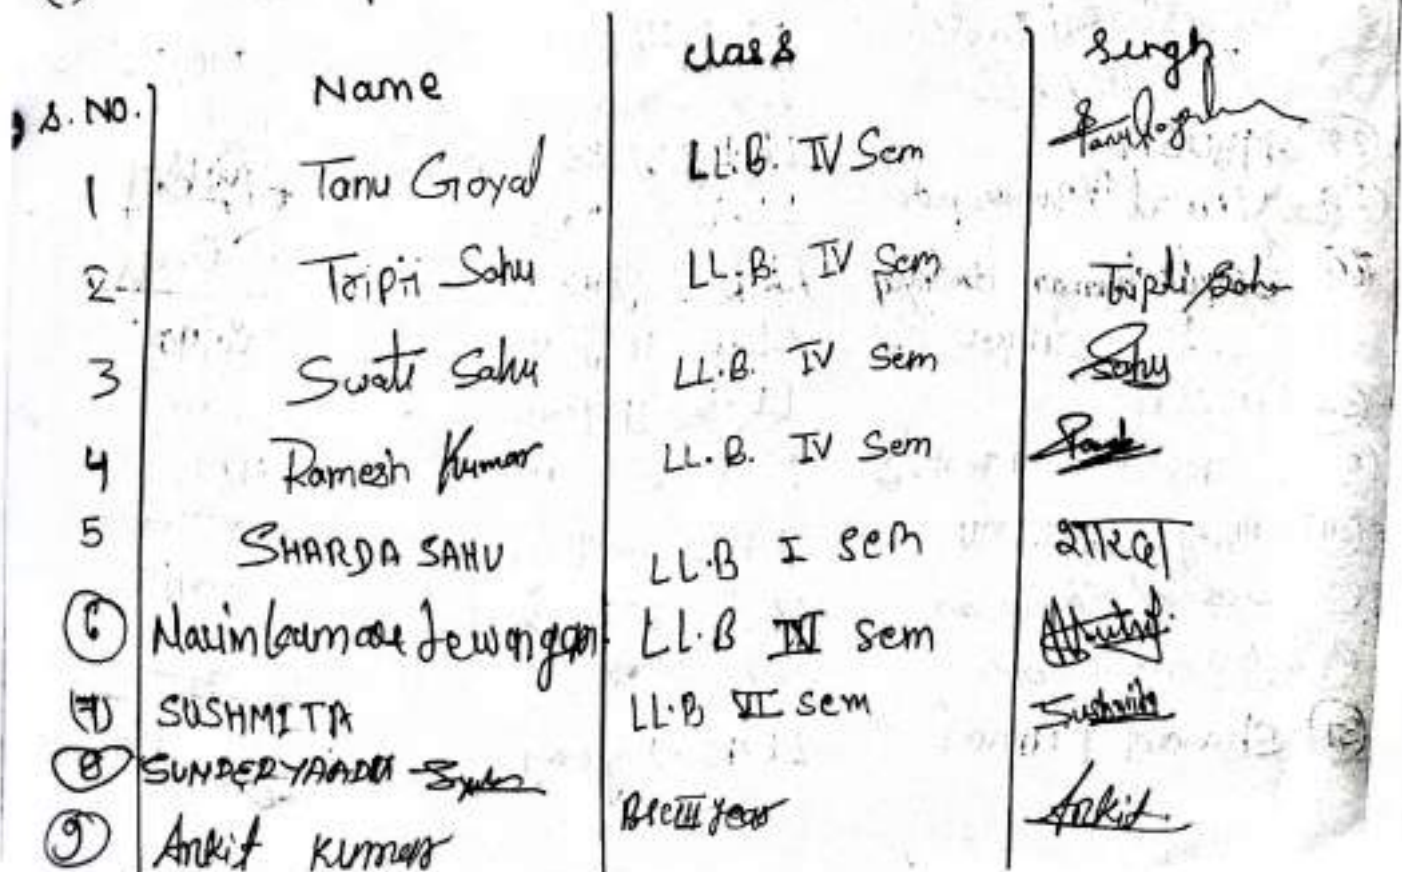 S. NO. Name Class Singh.
1 Tanu Goyal LL.B. IV Sem
2 Tripti Sahu LL.B. IV Sem Tripti Sahu
3 Swati Sahu LL.B. IV Sem Sahu
4 Ramesh Kumar LL.B. IV Sem
5 SHARDA SAHU LL.B I Sem शारदा
6 LL.B IV Sem
7 SUSHMITA LL.B VI Sem Sushmita
8 SUNDER
9 Ankit Kumar III year Ankit